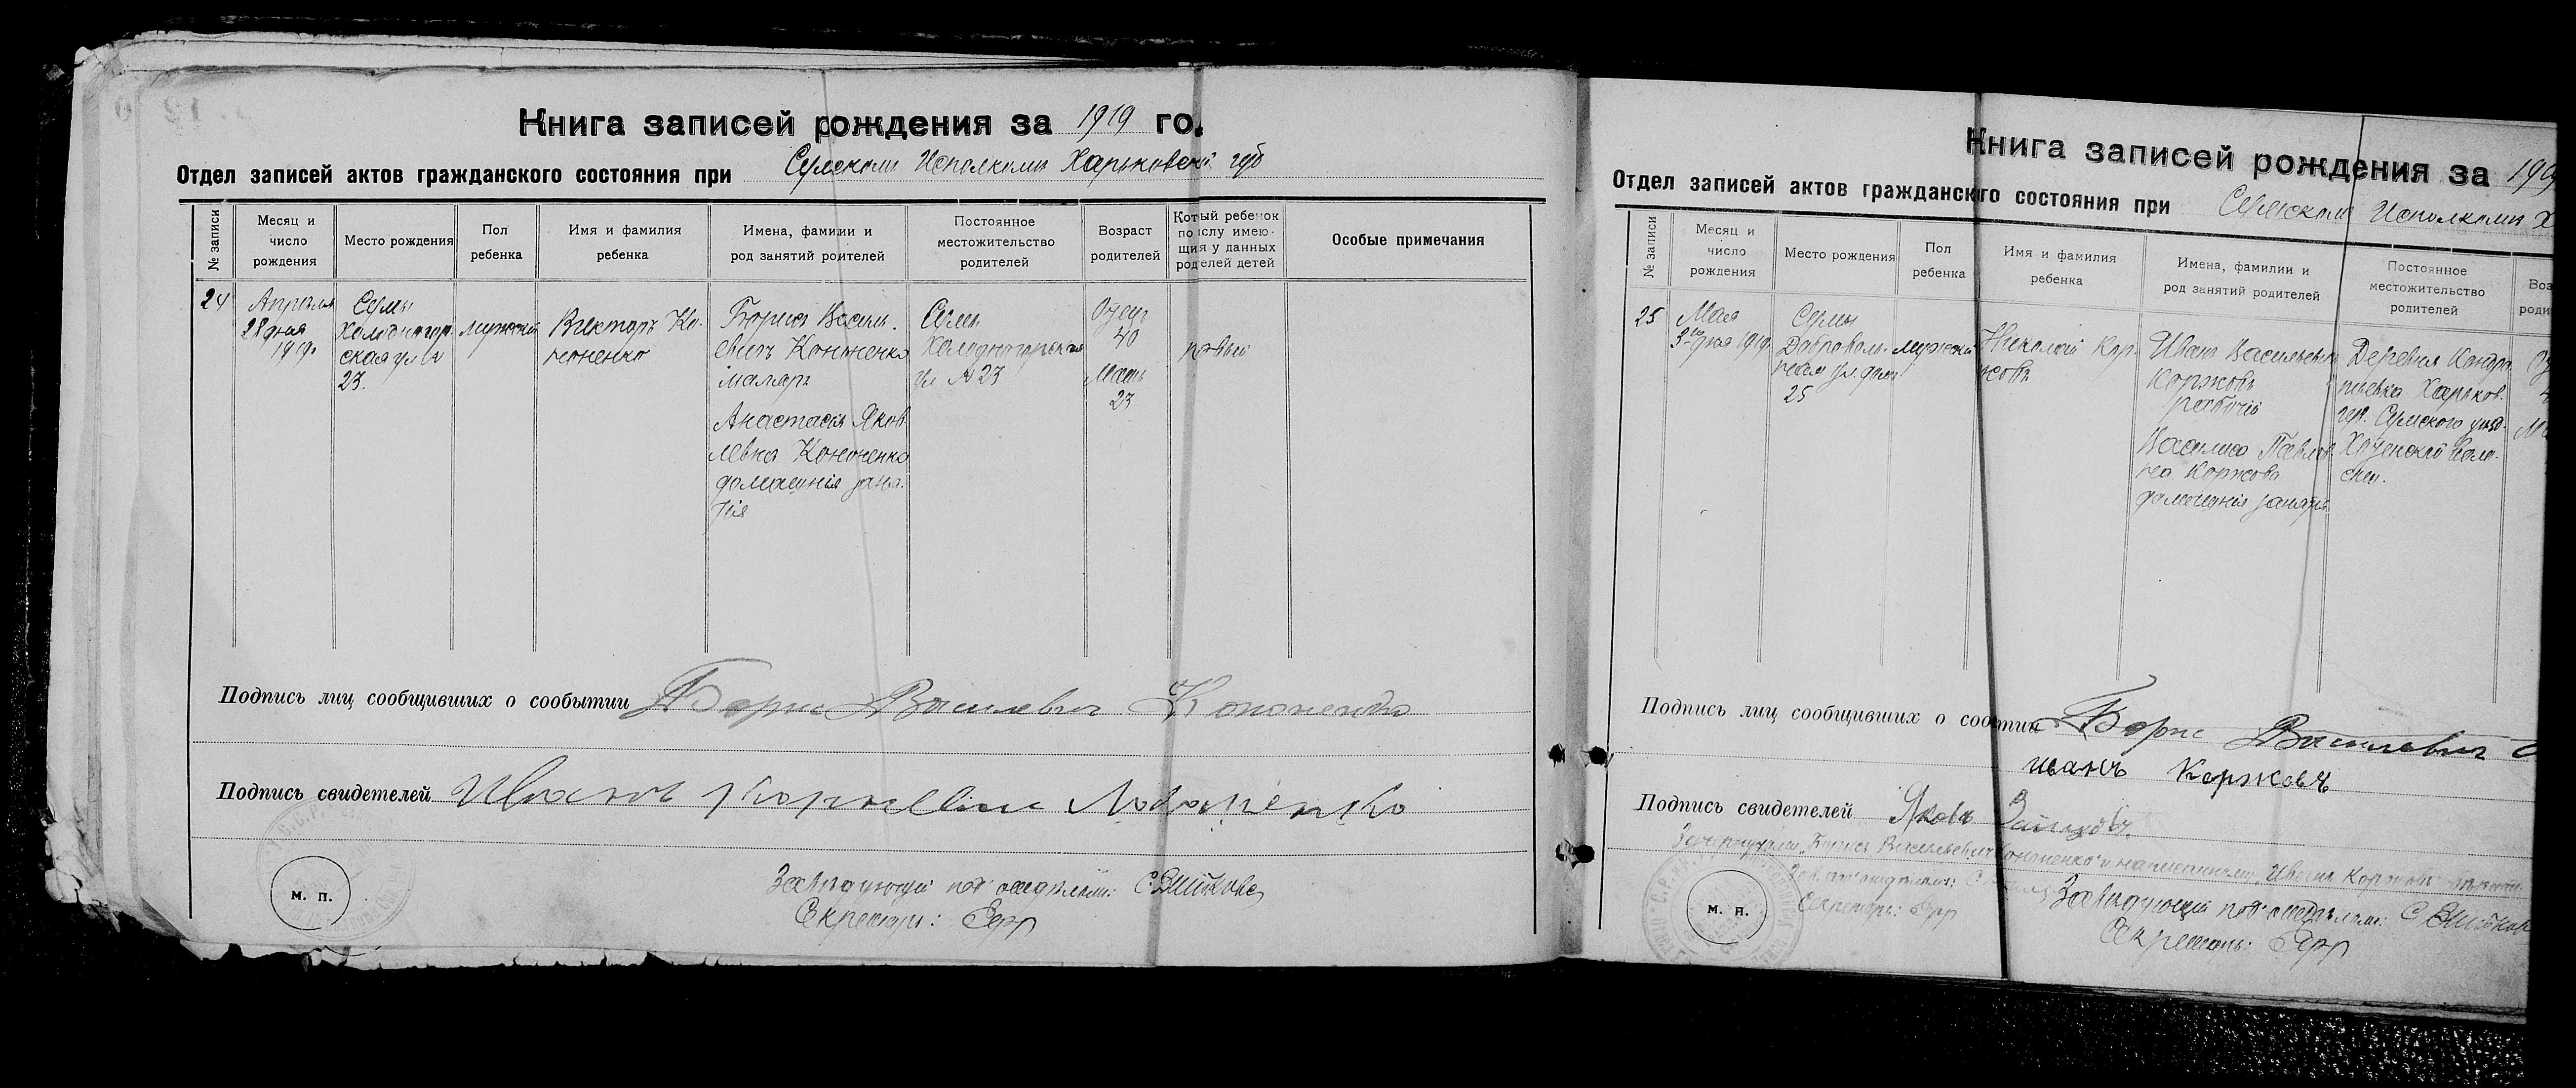 Книга записей рождения за 1919 го.
Отдел записей актов гражданского состояния при Сумском Исполкоми Харьковской губ
№ записи
Месяц и число рождения
Место рождения
Пол ребенка
Имя и фамилия ребенка
Имена, фамилии и род занятий роителей
Постоянное местожительство родителей
Возраст родителей
Котый ребенок по ислу имею-щия у данных роделей детей
Особые примечания
24
Апреля
28 дня
1919.
Сумы
Холодногор
ская ул
23.
мужской
Викторъ Ко-
ноненко
Борисъ Василь-
евичъ Кононенко
маляръ
Анастасія Яков
левна Кононенко
домашнія заня-
тія
Сумы
Холодногорская
ул № 23
Отец
40
Мать
23
первый
Подпись лиц сообщивших о сообытии Борис Василевич Кононенко
Подпись свидетелей Иван
м. п.
Заведующий под отделом:
Секретарь:
Книга записей рождения за 191
Отдел записей актов гражданскго состояния при Сумском Исполкоми Х
№ записи
Месяц и число рождения
Место рождения
Пол ребенка
Имя и фамилия ребенка
Имена, фамилии и род занятий родителей
Постоянное местожительство родителей
Воз
роди
25
Мая
3го дня 1919.
Сумы
Доброволь-
ная ул. дом
25
мужской
Николай Кор-
жовъ
Иванъ Васильевич
Коржовъ
рабочій
Василиса Павлов-
на Коржова
домашнія занятія
Деревня Кондра
тьевка Харьков.
губ. Сумского уезд.
Хотенской воло-
сти.
Подпись лиц сообщивших о соотии Борис Василевич
иванъ Коржовъ
Подпись свидетелей Яковъ
Зачеркнутому "Борисъ Васильевич Кононенко" и написанному "Иванъ Коржовъ"
Секретарь:
м. п.
Заведующий под отделом:
Секретарь: